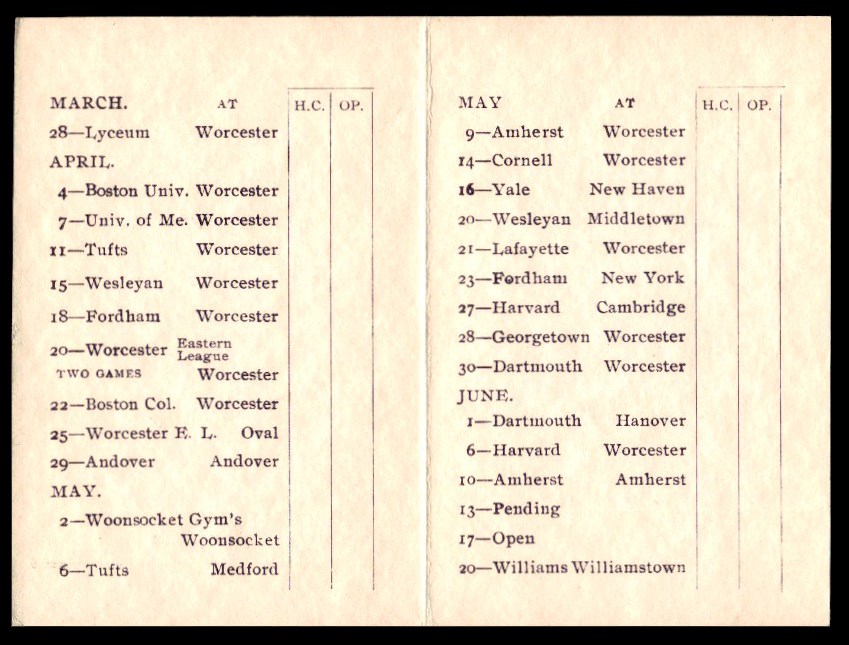 MARCH. AT H.C. OP.
28—Lyceum Worcester
APRIL.
4—Boston Univ. Worcester
7—Univ. of Me. Worcester
11—Tufts Worcester
15—Wesleyan Worcester
18—Fordham Worcester
20—Worcester Eastern League
TWO GAMES Worcester
22—Boston Col. Worcester
25—Worcester E. L. Oval
29—Andover Andover
MAY.
2—Woonsocket Gym's
Woonsocket
6—Tufts Medford
MAY AT H.C. OP.
9—Amherst Worcester
14—Cornell Worcester
16—Yale New Haven
20—Wesleyan Middletown
21—Lafayette Worcester
23—Fordham New York
27—Harvard Cambridge
28—Georgetown Worcester
30—Dartmouth Worcester
JUNE.
1—Dartmouth Hanover
6—Harvard Worcester
10—Amherst Amherst
13—Pending
17—Open
20—Williams Williamstown